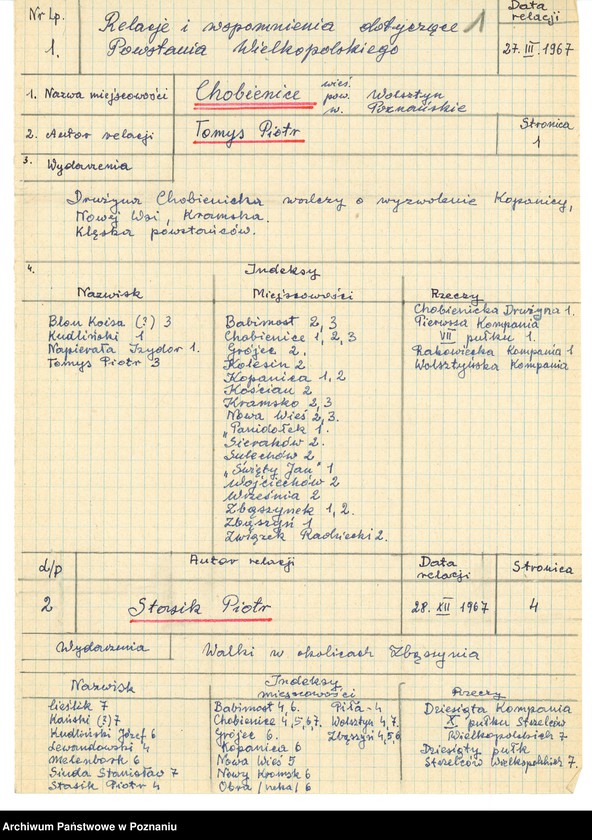 Nr Lp.
1.
Relacje i wspomnienia dotyczące 1
Powstania Wielkopolskiego
Data
relacji
27. III. 1967
1. Nazwa miejscowości
Chobienice
wieś.
pow. Wolsztyn
w. Poznańskie
2. Autor relacji
Tomys Piotr
Stronica
1
3. Wydarzenia
Drużyna Chobienicka walczy o wyzwolenie Kopanicy,
Nowej Wsi, Kramska.
Klęska powstańców.
4. Indeksy
Nazwisk
Blon Koisa (?) 3
Kudliński 1
Napierała Izydor 1.
Tomys Piotr 3
Miejscowości
Babimost 2, 3
Chobienice 1, 2, 3
Grójec 2.
Kolesin 2
Kopanica 1, 2
Kościan 2
Kramsko 2, 3
Nowa Wieś 2, 3.
„Paniodołek 1.
Sieraków 2.
Sulechów 2
„Święty Jan" 1
Wojciechów 2
Września 2
Zbąszynek 1, 2.
Zbąszyń 1
Związek Radziecki 2.
Rzeczy
Chobienicka Drużyna 1.
Pierwsza Kompania
VII pułku 1.
Rakowiecka Kompania 1
Wolsztyńska Kompania
d/p
2
Autor relacji
Stasik Piotr
Data
relacji
28. XII 1967
Stronica
4
Wydarzenia
Walki w okolicach Zbąszynia
Indeksy
Nazwisk
Cieślik 7
Kański (?) 7
Kudliński Józef 6
Lewandowski 4
Melenbork 6
Siuda Stanisław 7
Stasik Piotr 4
miejscowości
Babimost 4, 6.
Chobienice 4, 5, 6, 7.
Grójec 6.
Kopanica 6
Nowa Wieś 5
Nowy Kromsk 6
Obra /rzeka/ 6
Piła - 4
Wolsztyn 4, 7.
Zbąszyń 4, 5, 6
Rzeczy
Dziesiąta Kompania
X. pułku Strzelców
Wielkopolskich 7
Dziesiąty pułk
Strzelców Wielkopolskich 7.
Archiwum Państwowe w Poznaniu